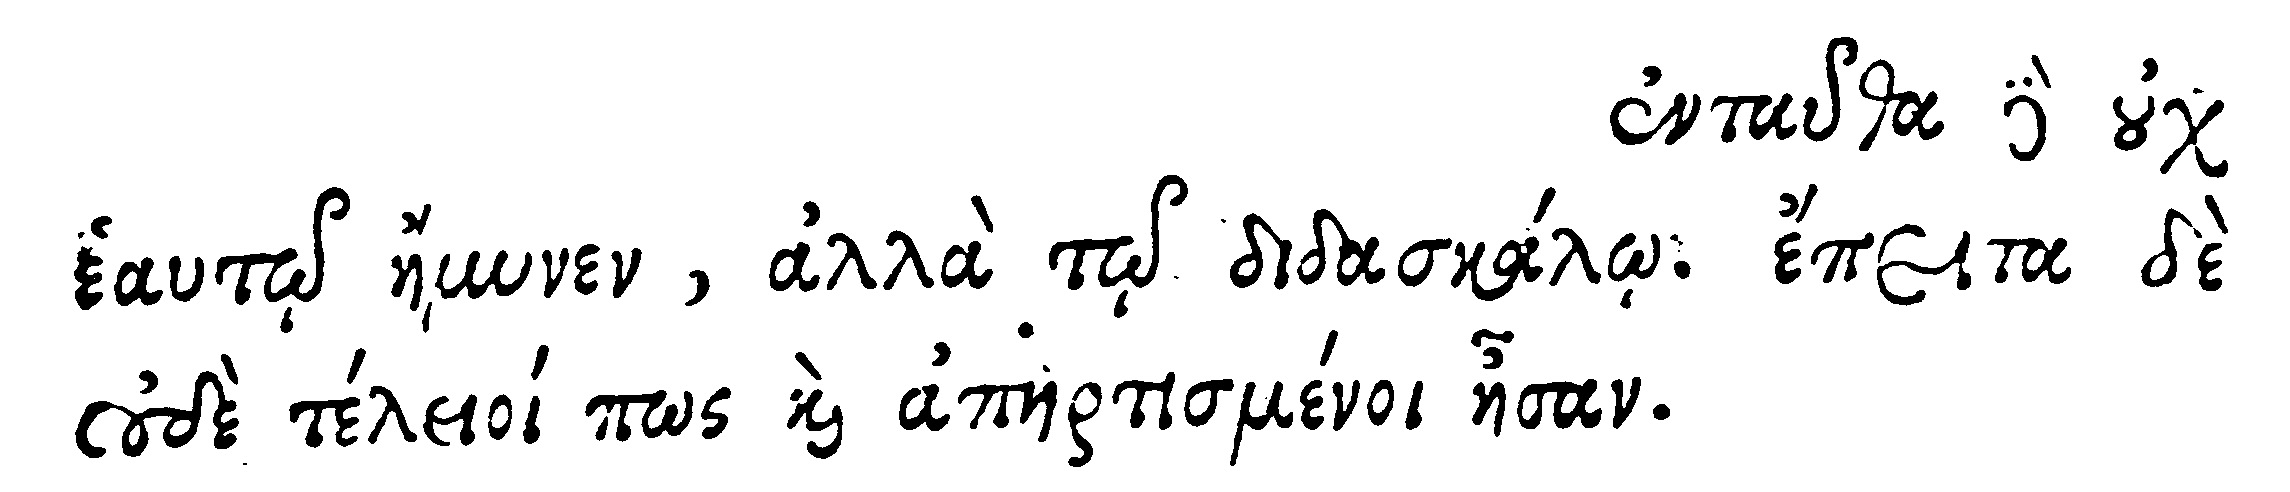 ἐνταῦθα δὲ οὐχ
ἑαυτῷ ἤμυνεν, ἀλλὰ τῷ διδασκάλῳ. ἔπειτα δὲ
οὐδὲ τέλειοί πως καὶ ἀπηρτισμένοι ἦσαν.